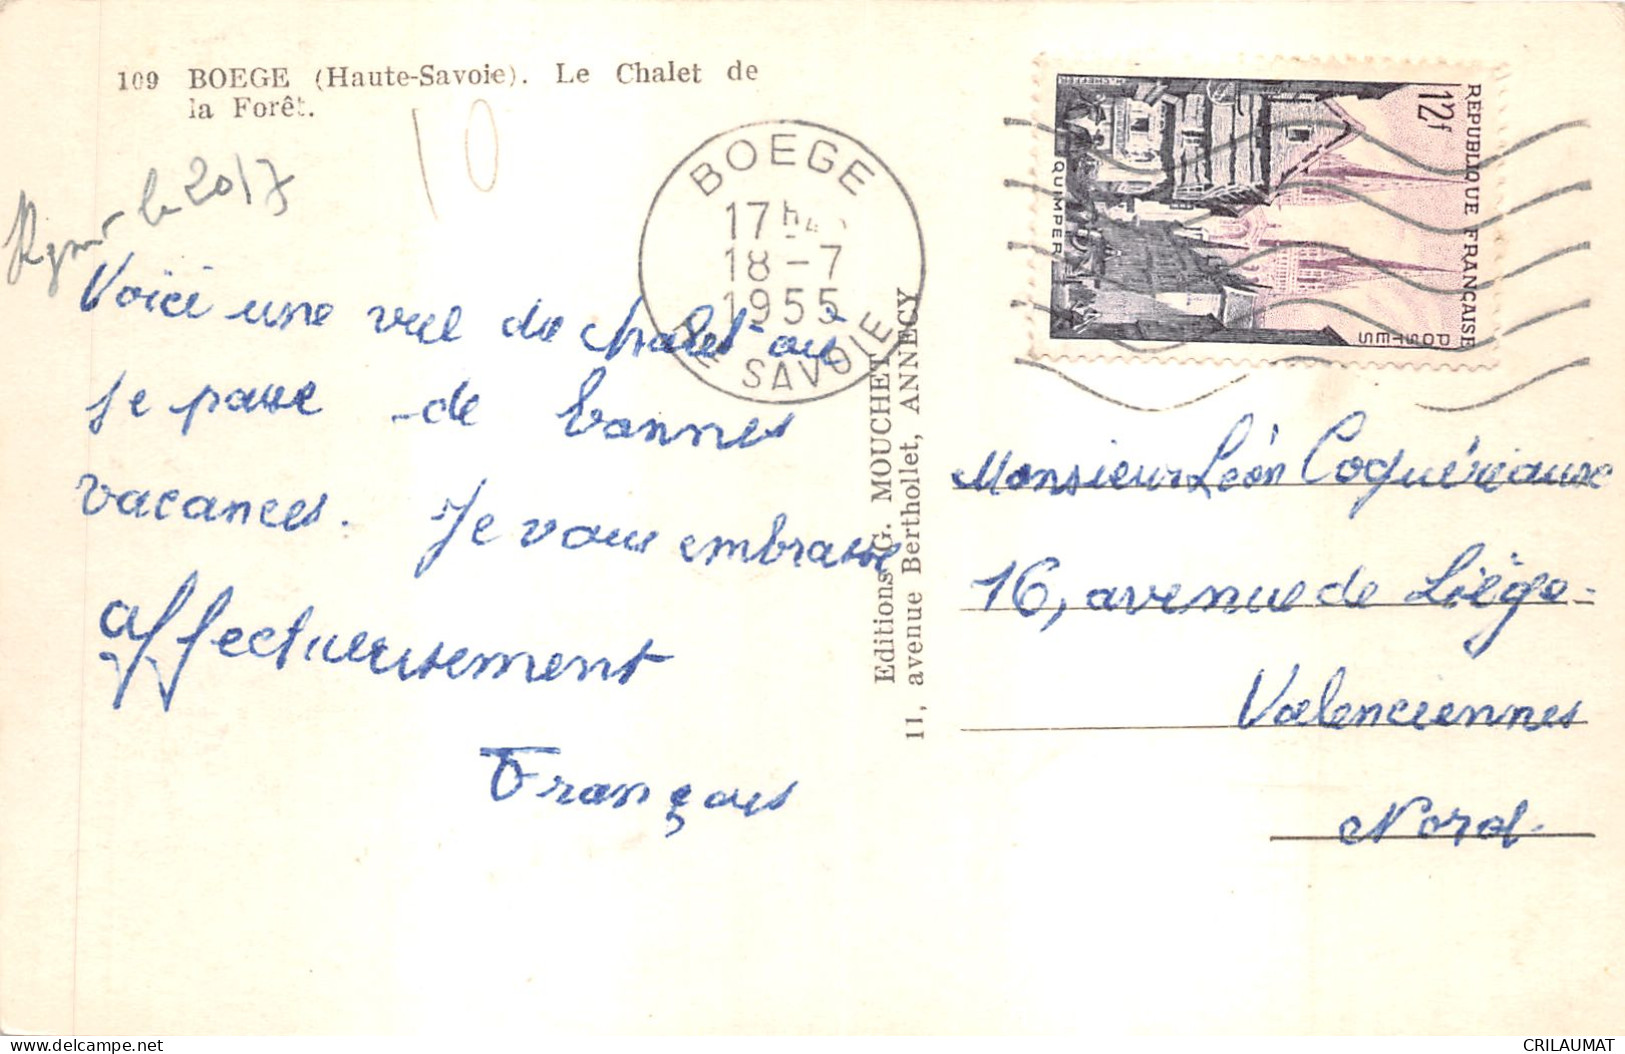 109 BOEGE (Haute-Savoie). Le Chalet de
la Forêt.
10
le 20/7
Voici une vue du chalet où
se passe de bonnes
vacances. Je vous embrasse
affectueusement
François
BOEGE
17 h
18 - 7
1955
HTE SAVOIE
Editions G. MOUCHET
11, avenue Berthollet, ANNECY
REPUBLIQUE FRANÇAISE
12f
POSTES
QUIMPER
Monsieur Léon Coquériaux
16, avenue de Liège-
Valenciennes
Nord-
CRILAUMAT